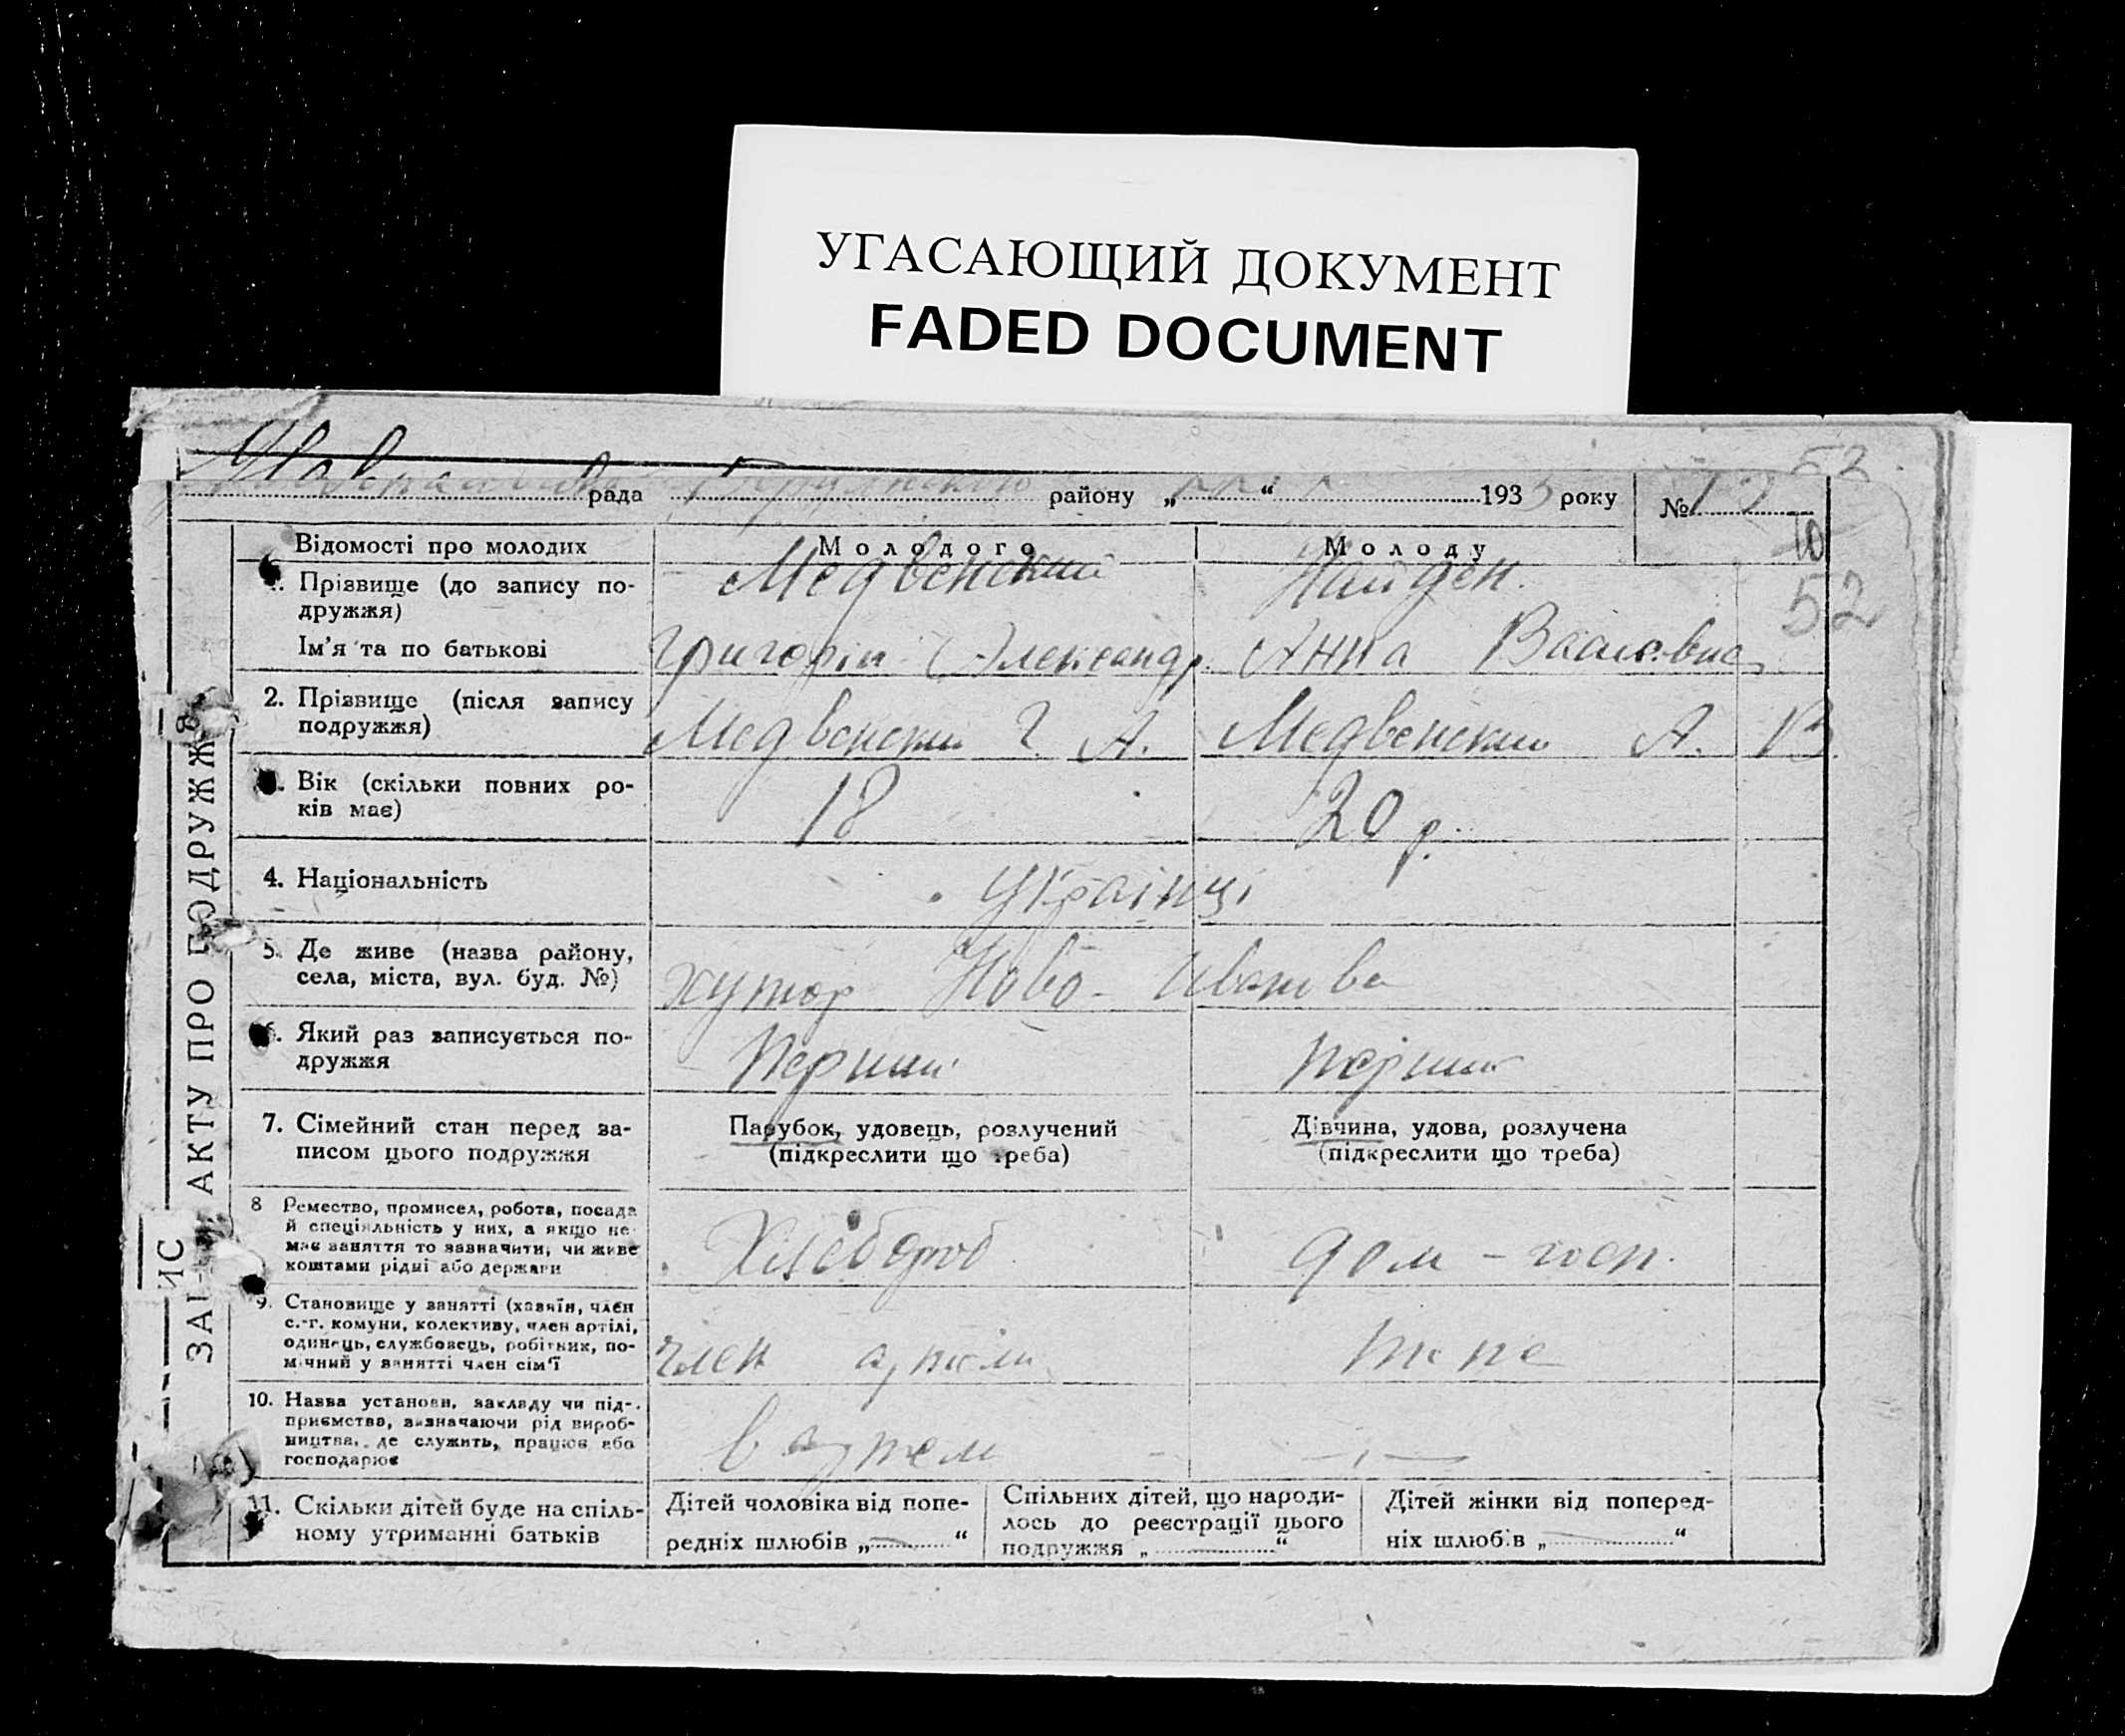 УГАСАЮЩИЙ ДОКУМЕНТ
FADED DOCUMENT
52
рада району „ “ 193 року № 12
10
52
ЗАПИС АКТУ ПРО ПОДРУЖЖЯ
Відомості про молодих Молодого Молоду
1. Прізвище (до запису по-
дружжя)
Медвенский Найден.
Ім'я та по батькові Григорій Александр. Анна Васильевна
2. Прізвище (після запису
подружжя)
Медвенский Г. А. Медвенский А. В.
3. Вік (скільки повних ро-
ків має)
18 20 р.
4. Національність Українці
5. Де живе (назва району,
села, міста, вул. буд. №)
хутор Ново-Иванова
6. Який раз записується по-
дружжя
Перший перший
7. Сімейний стан перед за-
писом цього подружжя
Парубок, удовець, розлучений
(підкреслити що треба)
Дівчина, удова, розлучена
(підкреслити що треба)
8 Ремество, промисел, робота, посада
й спеціяльність у них, а якщо не
має заняття то зазначити, чи живе
коштами рідні або держави
Хлебороб дом-госп.
9. Становище у занятті (хазяїн, член
с.-г. комуни, колективу, член артілі,
одинець, службовець, робітник, по-
мічний у занятті член сім'ї
член артіли
10. Назва установи, закладу чи під-
приємства, зазначаючи рід вироб-
ництва, де служить, працює або
господарює
в артели - -,-
11. Скільки дітей буде на спіль-
ному утриманні батьків
Дітей чоловіка від попе-
редніх шлюбів „—“
Спільних дітей, що народи-
лось до реєстрації цього
подружжя „ “
Дітей жінки від поперед-
ніх шлюбів „—“